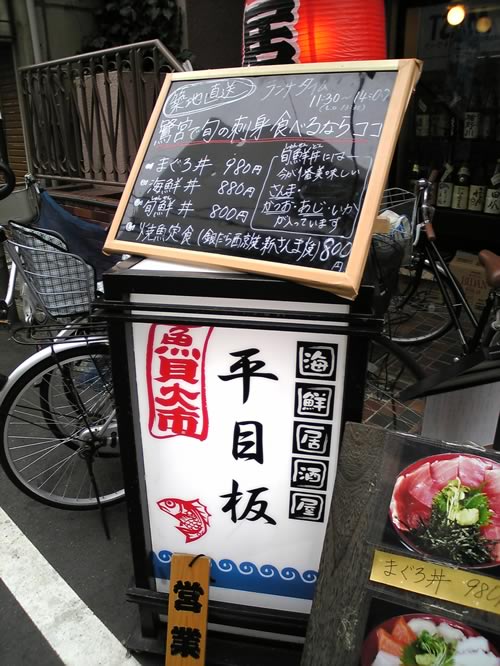 築地直送 ランチタイム
11:30～14:00
鷺宮で旬の刺身食べるならココ
まぐろ丼 980円
海鮮丼 880円
旬鮮丼 800円
焼魚定食(銀だら西京焼 新さんま焼)800円
旬鮮丼には
今が一番美味しい
さんま・
かつお・あじ・いか
が入っています
海鮮居酒屋
平目板
魚貝大市
営業
まぐろ丼 980